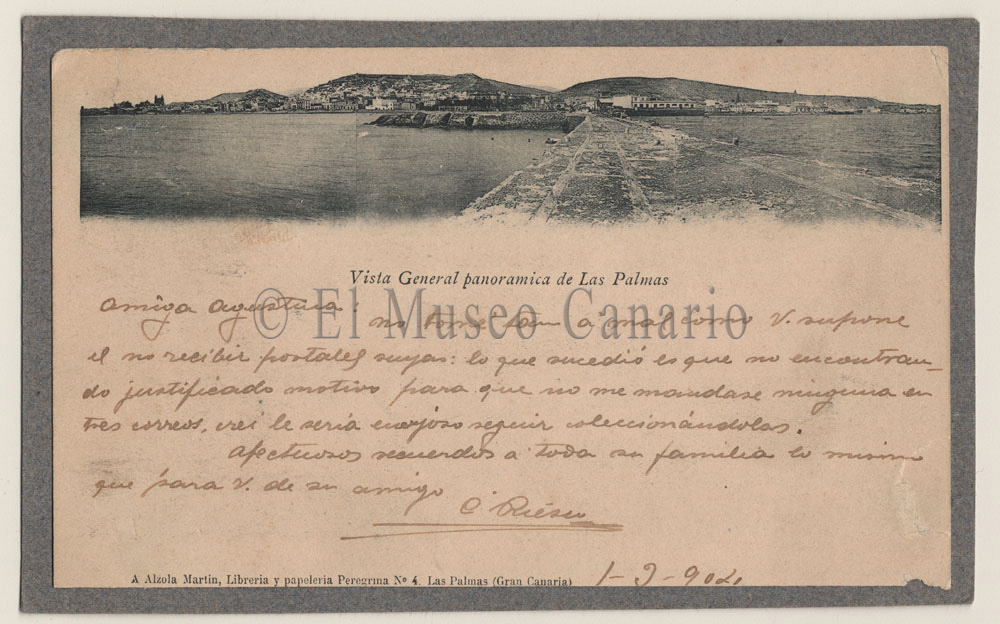 Vista General panoramica de Las Palmas
© El Museo Canario
Amiga Agustina: no tome tan a mal como V. supone
el no recibir postales suyas: lo que sucedió es que no encontran-
do justificado motivo para que no me mandase ninguna en
tres correos, creí le sería enojoso seguir coleccionándolas.
Afectuosos recuerdos a toda su familia lo mismo
que para V. de su amigo
C. 
A Alzola Martin, Libreria y papeleria Peregrina Nº 4. Las Palmas (Gran Canaria)